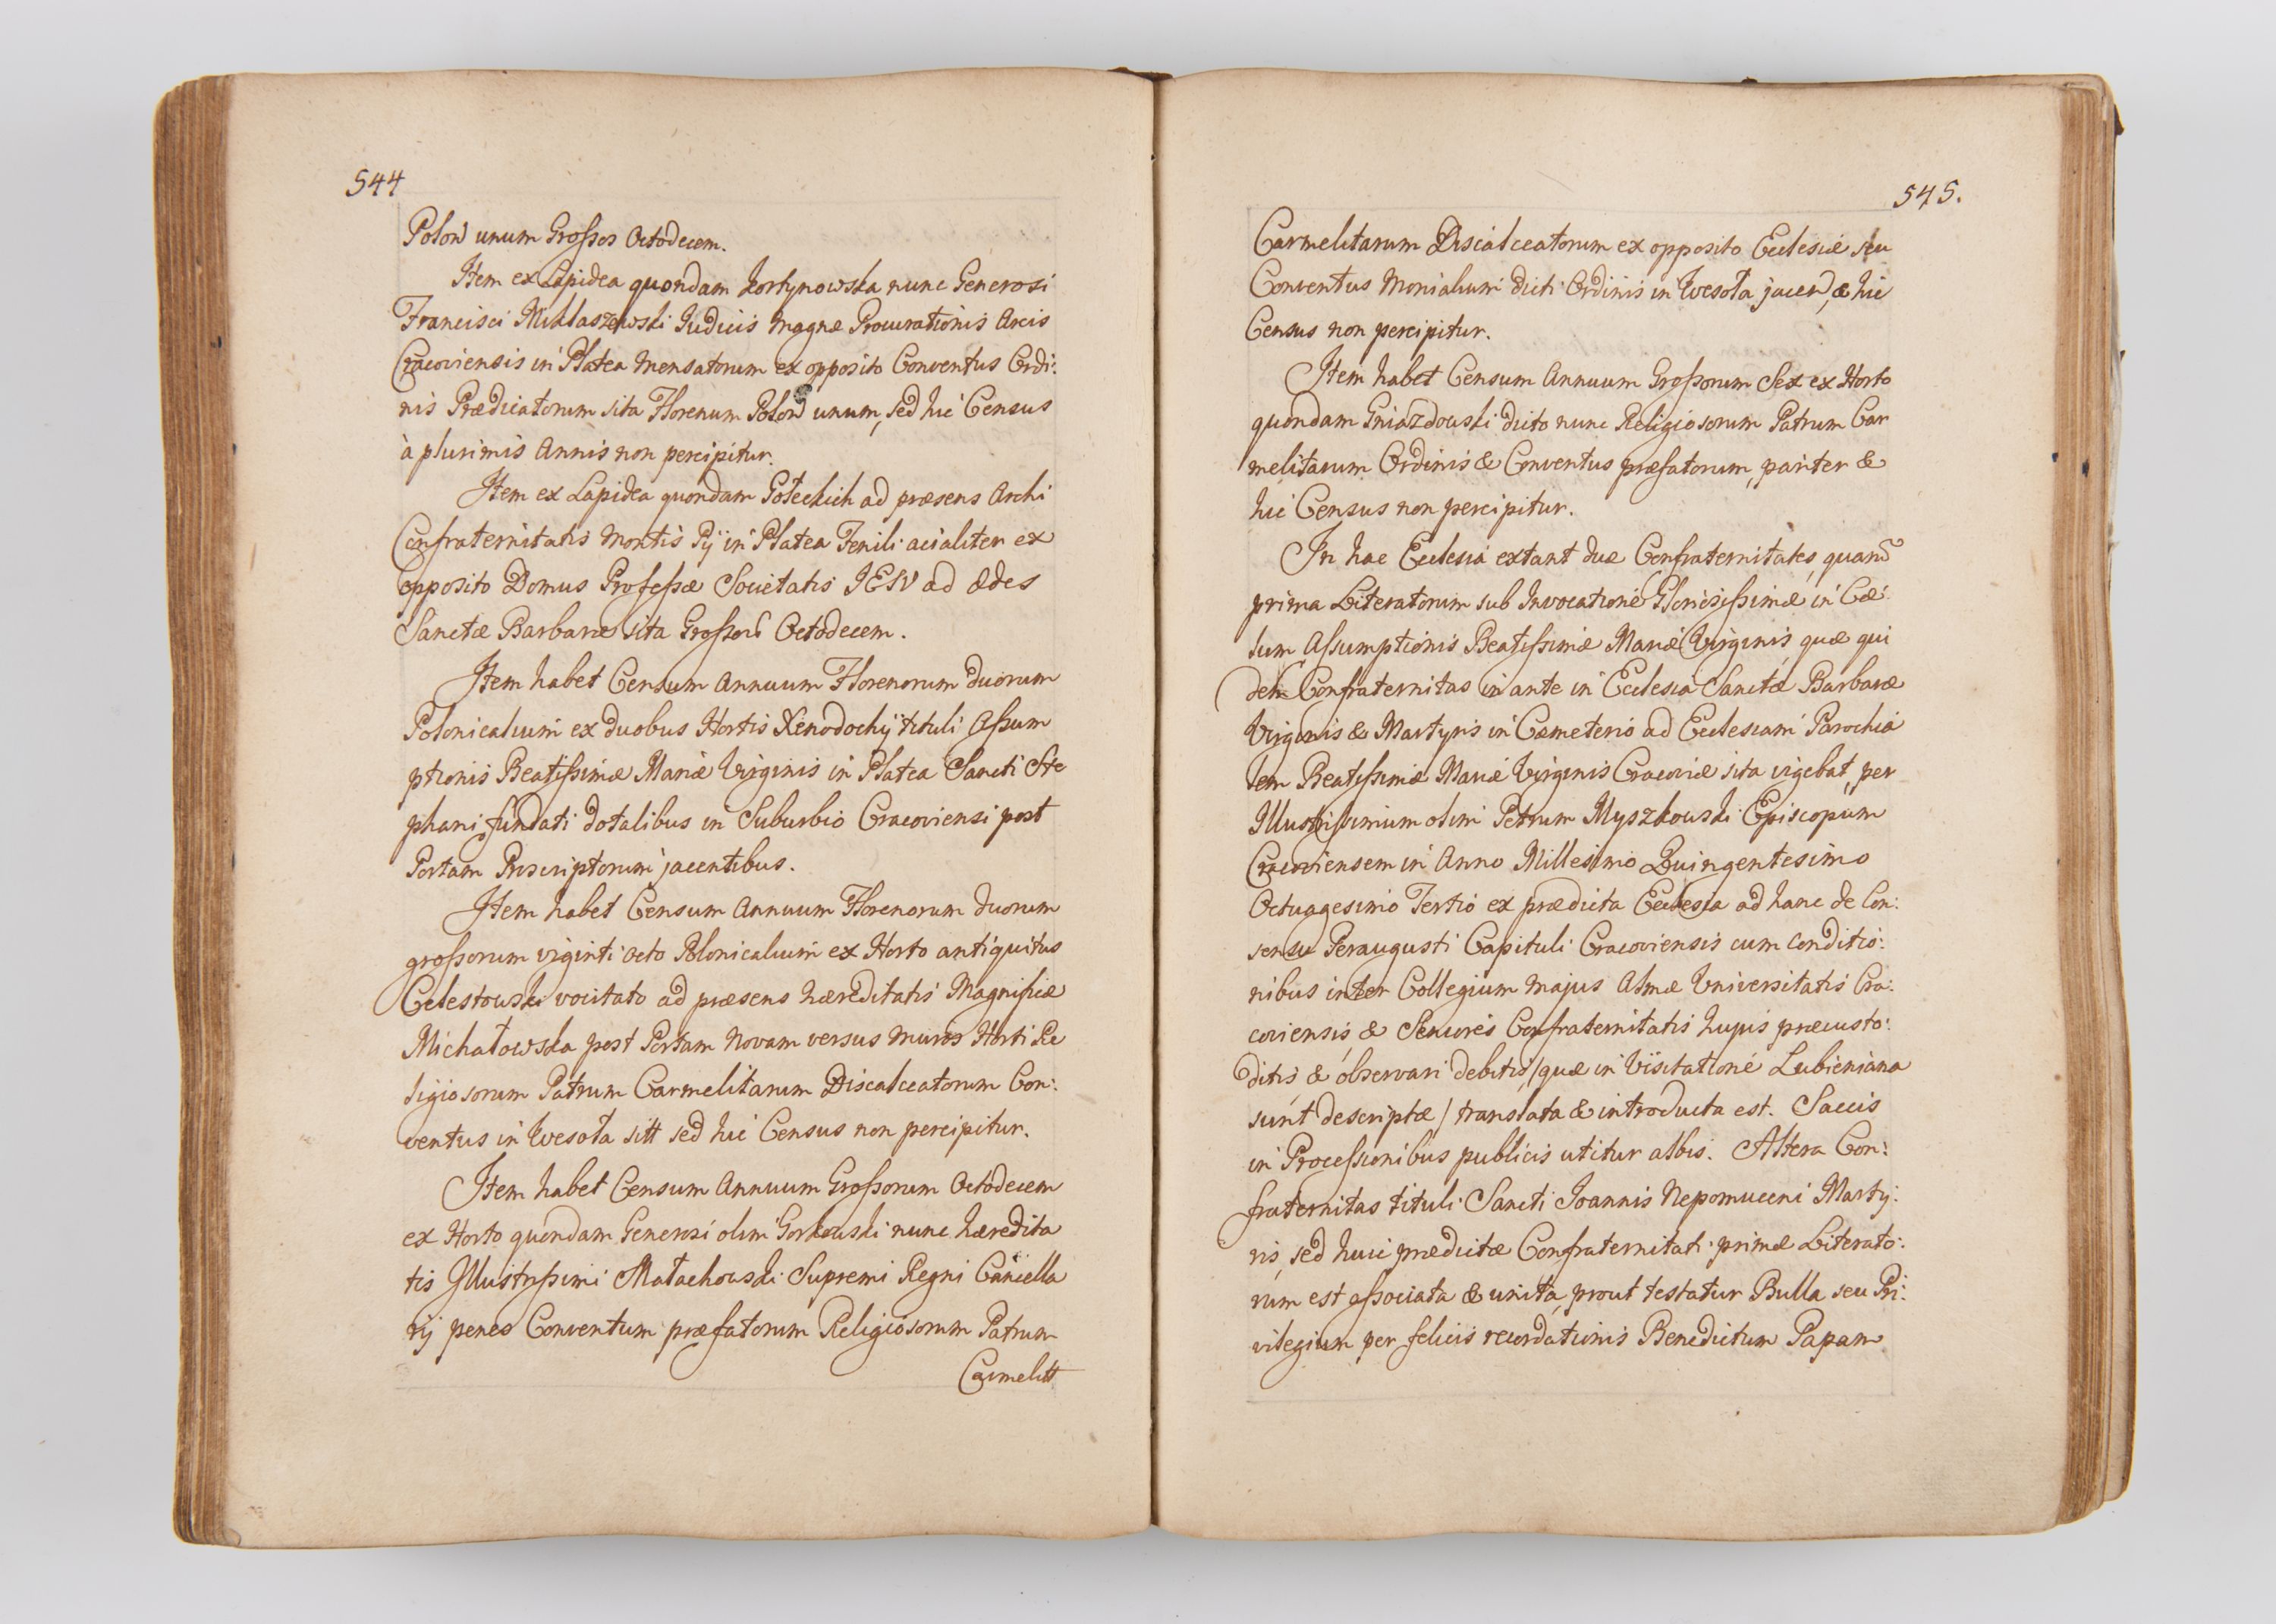 544
Polon̄ unum Grossos Octodecem.
Item ex Lapidea quondam Kortynowska nunc Generosi
Francisci Miklaszewski Judicis Magnæ Procurationis Arcis
Cracoviensis in Platea Mensatorum ex opposito Conventus Ordi:
nis Prædicatorum sita Florenum Polon̄ unum, sed hic Census
à plurimis Annis non percipitur.
Item ex Lapidea quondam ad præsens Archi
Confraternitatis Montis Pij in Platea Fenili acialiter ex
opposito Domus Professæ Societatis IESV ad Ædes
Sanctæ Barbaræ sita Grossorū Octodecem.
Item habet Censum Annuum Florenorum duorum
Polonicalium ex duobus Hortis Xenodochij tituli Assum
ptionis Beatissimæ Mariæ Virginis in Platea Sancti Ste
phani fundati dotalibus in Suburbio Cracoviensi post
Portam Proscriptorum jacentibus.
Item habet Censum Annuum Florenorum duorum
grossorum viginti octo Polonicalium ex Horto antiquitus
Celestowski vocitato ad præsens hæreditatis Magnificæ
Michałowska post Portam Novam versus muros Horti Re
ligiosorum Patrum Carmelitarum Discalceatorum Con:
ventus in Wesoła sitt sed hic Census non percipitur.
Item habet Censum Annuum Grossorum Octodecem
ex Horto quondam Generosi olim Gorkowski nunc hæredita
tis Illustrissimi Małachowski Supremi Regni Cancella
rij penes Conventum præfatorum Religiosorum Patrum
Carmelitt
545.
Carmelitarum Discalceatorum ex opposito Ecclesiæ seu
Conventus Monialium dicti Ordinis in Wesoła jacen̄, & hic
Census non percipitur.
Item habet Censum Annuum Grossorum Sex ex Horto
quondam Gniazdowski dicto nunc Religiosorum Patrum Car
melitarum Ordinis & Conventus præfatorum, pariter &
hic Census non percipitur.
In hac Ecclesia extant duæ Confraternitates, quarū
prima Literatorum sub Invocatione Gloriosissimæ in Cœ:
lum Assumptionis Beatissimæ Mariæ Virginis, quæ qui
dem Confraternitas in ante in Ecclesia Sanctæ Barbaræ
Virginis & Martyris in Cœmeterio ad Ecclesiam Parochia
lem Beatissimæ Mariæ Virginis Cracoviæ sita vigebat, per
Illustrissimum olim Petrum Myszkowski Episcopum
Cracoviensem in Anno Millesimo Quingentesimo
Octuagesimo Tertio ex prædicta Ecclesia ad hanc de Con:
sensu Peraugusti Capituli Cracoviensis cum Conditio:
nibus inter Collegium Majus Almæ Universitatis Cra:
coviensis, & Seniores Confraternitatis hujus præcusto:
ditis & observari debitis, /quæ in Visitatione Lubieniana
sunt descriptæ/ translata & introducta est. Saccis
in Processionibus publicis utitur albis. Altera Con:
fraternitas tituli Sancti Joannis Nepomuceni Marty:
ris, sed huic prædictæ Confraternitati primæ Literato:
rum est associata & unita, prout testatur Bulla seu Pri:
vilegium per felicis recordationis Benedictum Papam